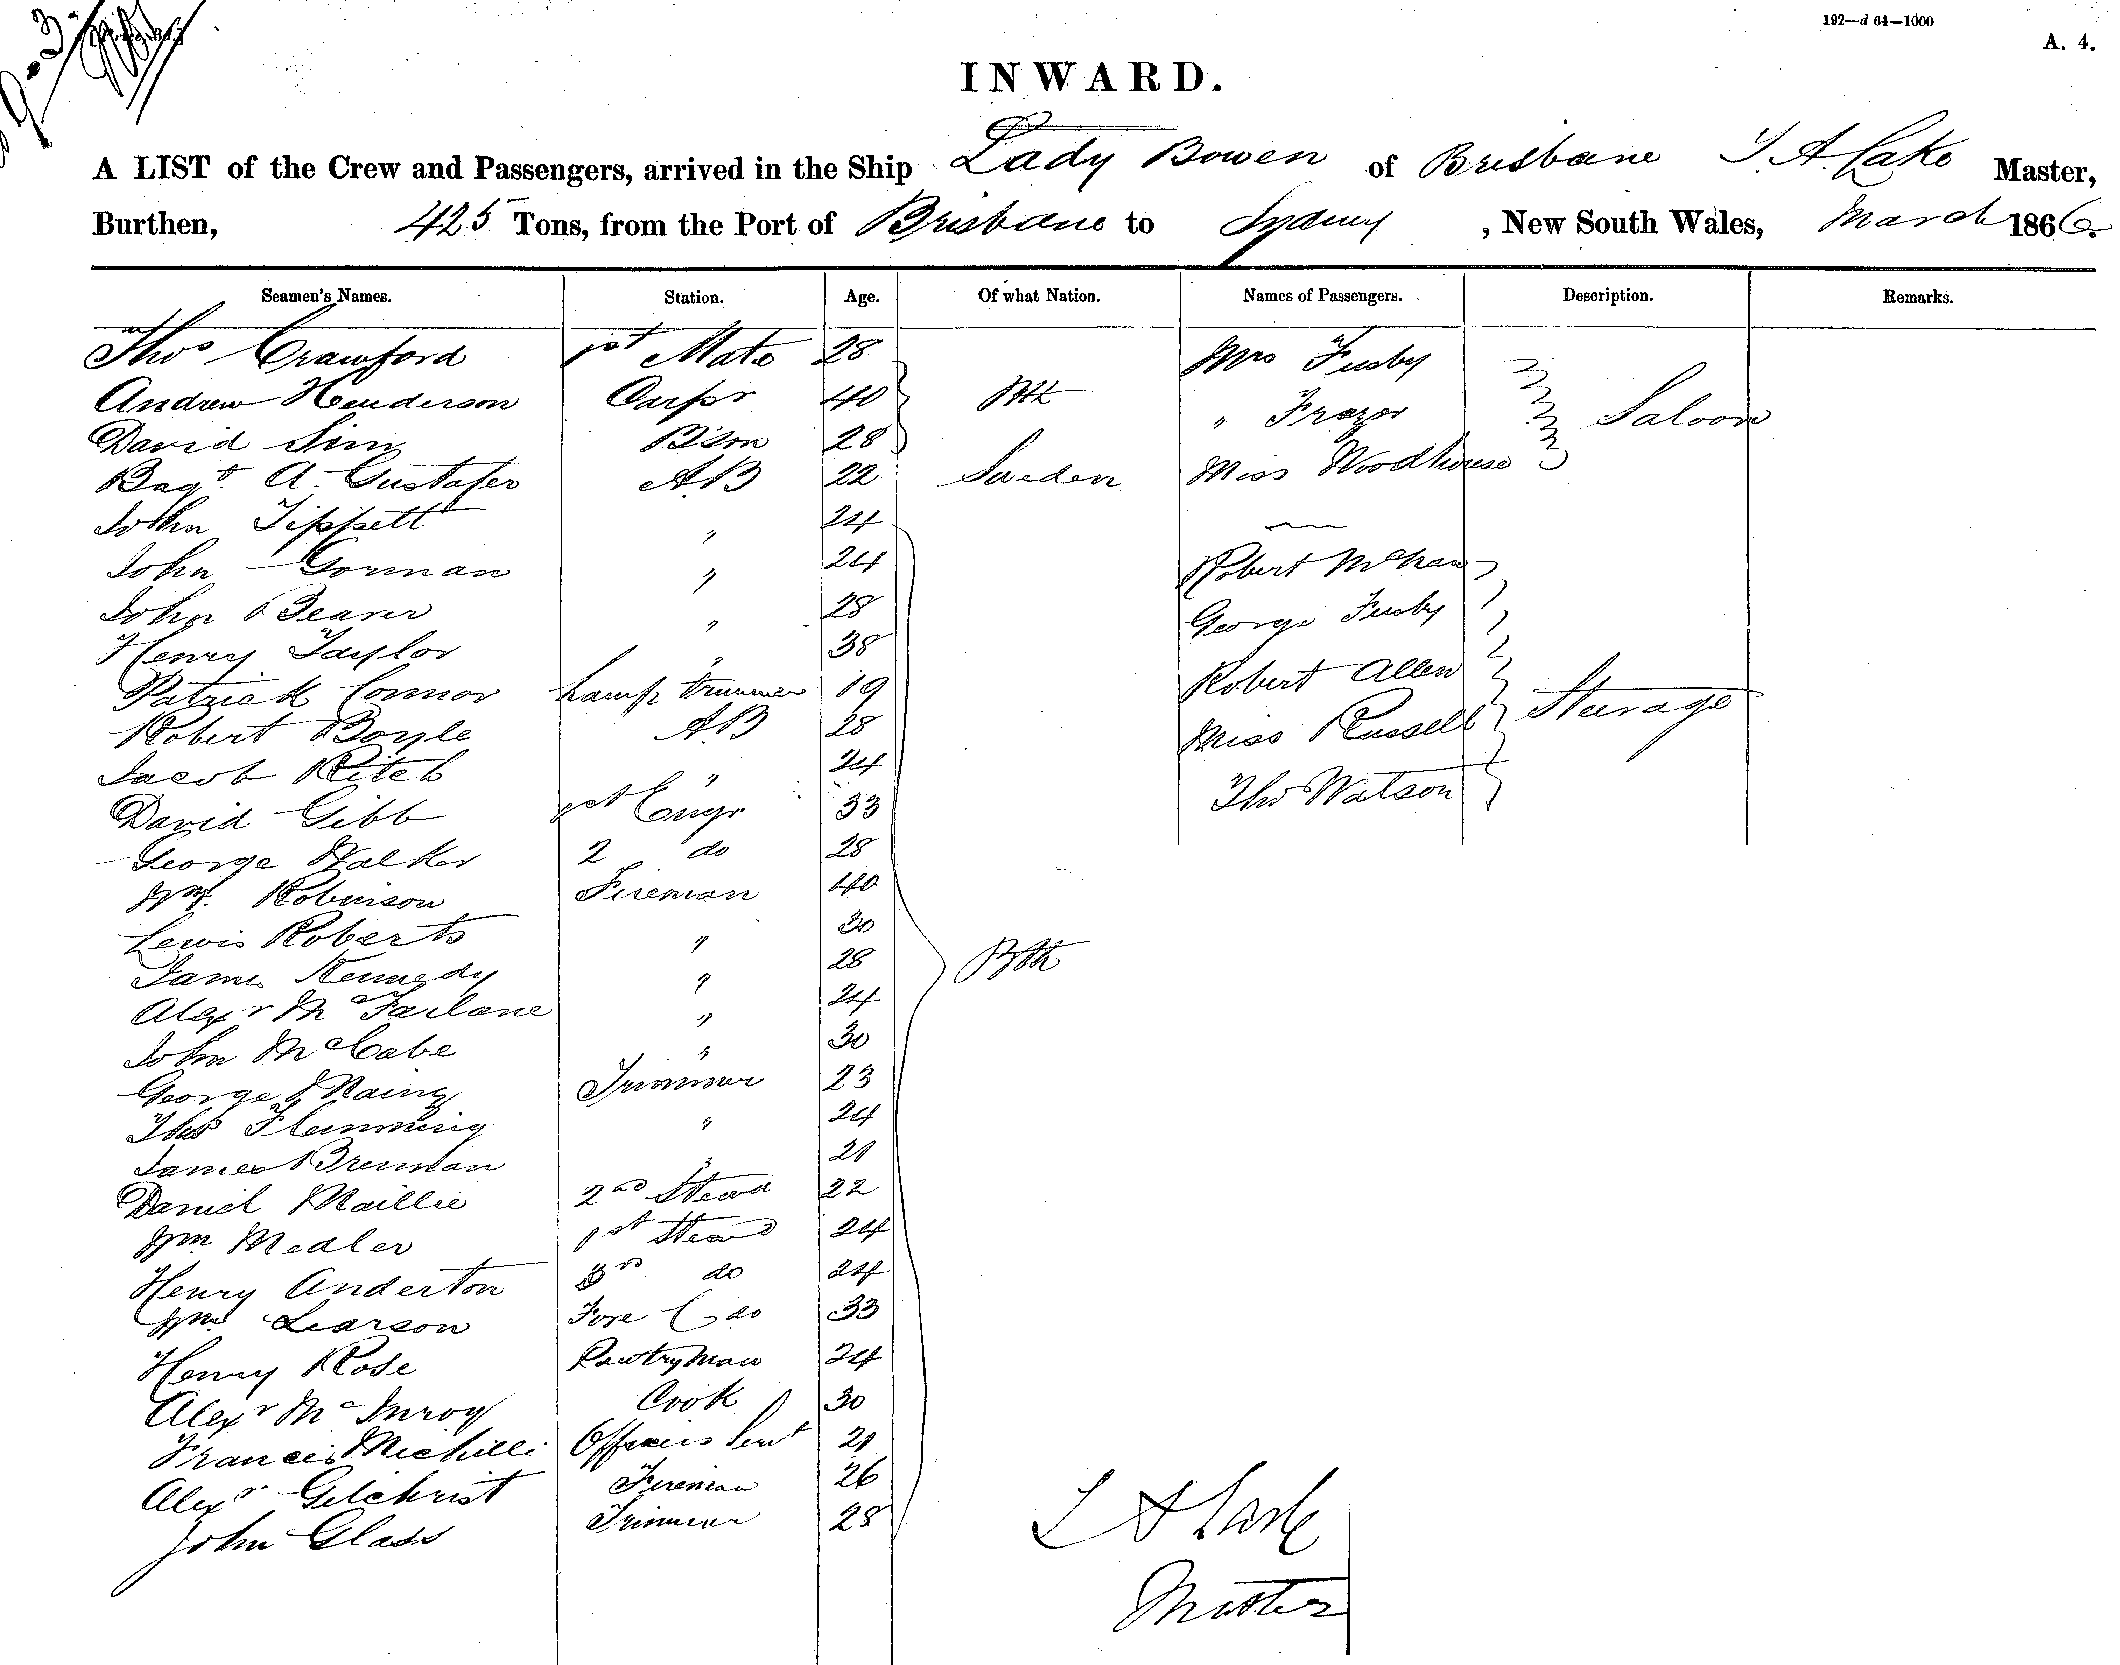 192—d 64—1000
A. 4.
INWARD.
A LIST of the Crew and Passengers, arrived in the Ship Lady Bowen of Brisbane T. A. Lake Master,
Burthen, 425 Tons, from the Port of Brisbane to Sydney, New South Wales, March 1866.
Seamen's Names. Station. Age. Of what Nation. Names of Passengers. Description. Remarks.
Thos Crawford 1st Mate 28 Mrs Fusby
Andrew Henderson Carpr 40 Bth " Frazer Saloon
David Sim B'son 28
A. Gustafer A.B 22 Sweden Miss Woodhouse
John Tippett " 24
John Gorman " 24 Robert
John Bearer " 28 George Fusby
Henry Taylor " 38
Patrick Connor Lamp trimmer 19 Robert Allen Steerage
Robert Boyle A.B 28 Miss Russell
Jacob " 24
David Gibb 1st Engr 33 Thos Watson
George Walker 2 do 28
Wm. Robinson Fireman 40
Lewis Roberts " 30
James Kennedy " 28 Bth
Alexr McFarlane " 24
John McCabe " 30
George Trimmer 23
Thos Flemming " 24
James Brennan " 21
Daniel Maillie 2nd Stewd 22
Wm Medler 1st Stewd 24
Henry Anderton 3rd do 24
Wm Learson Fore C do 33
Henry Rose Pantryman 24
Alexr McInroy Cook 30
Francis Michilli Officers Servt 21
Alexr Gilchrist Fireman 26
John Glass Trimmer 28
T A Lake
Master